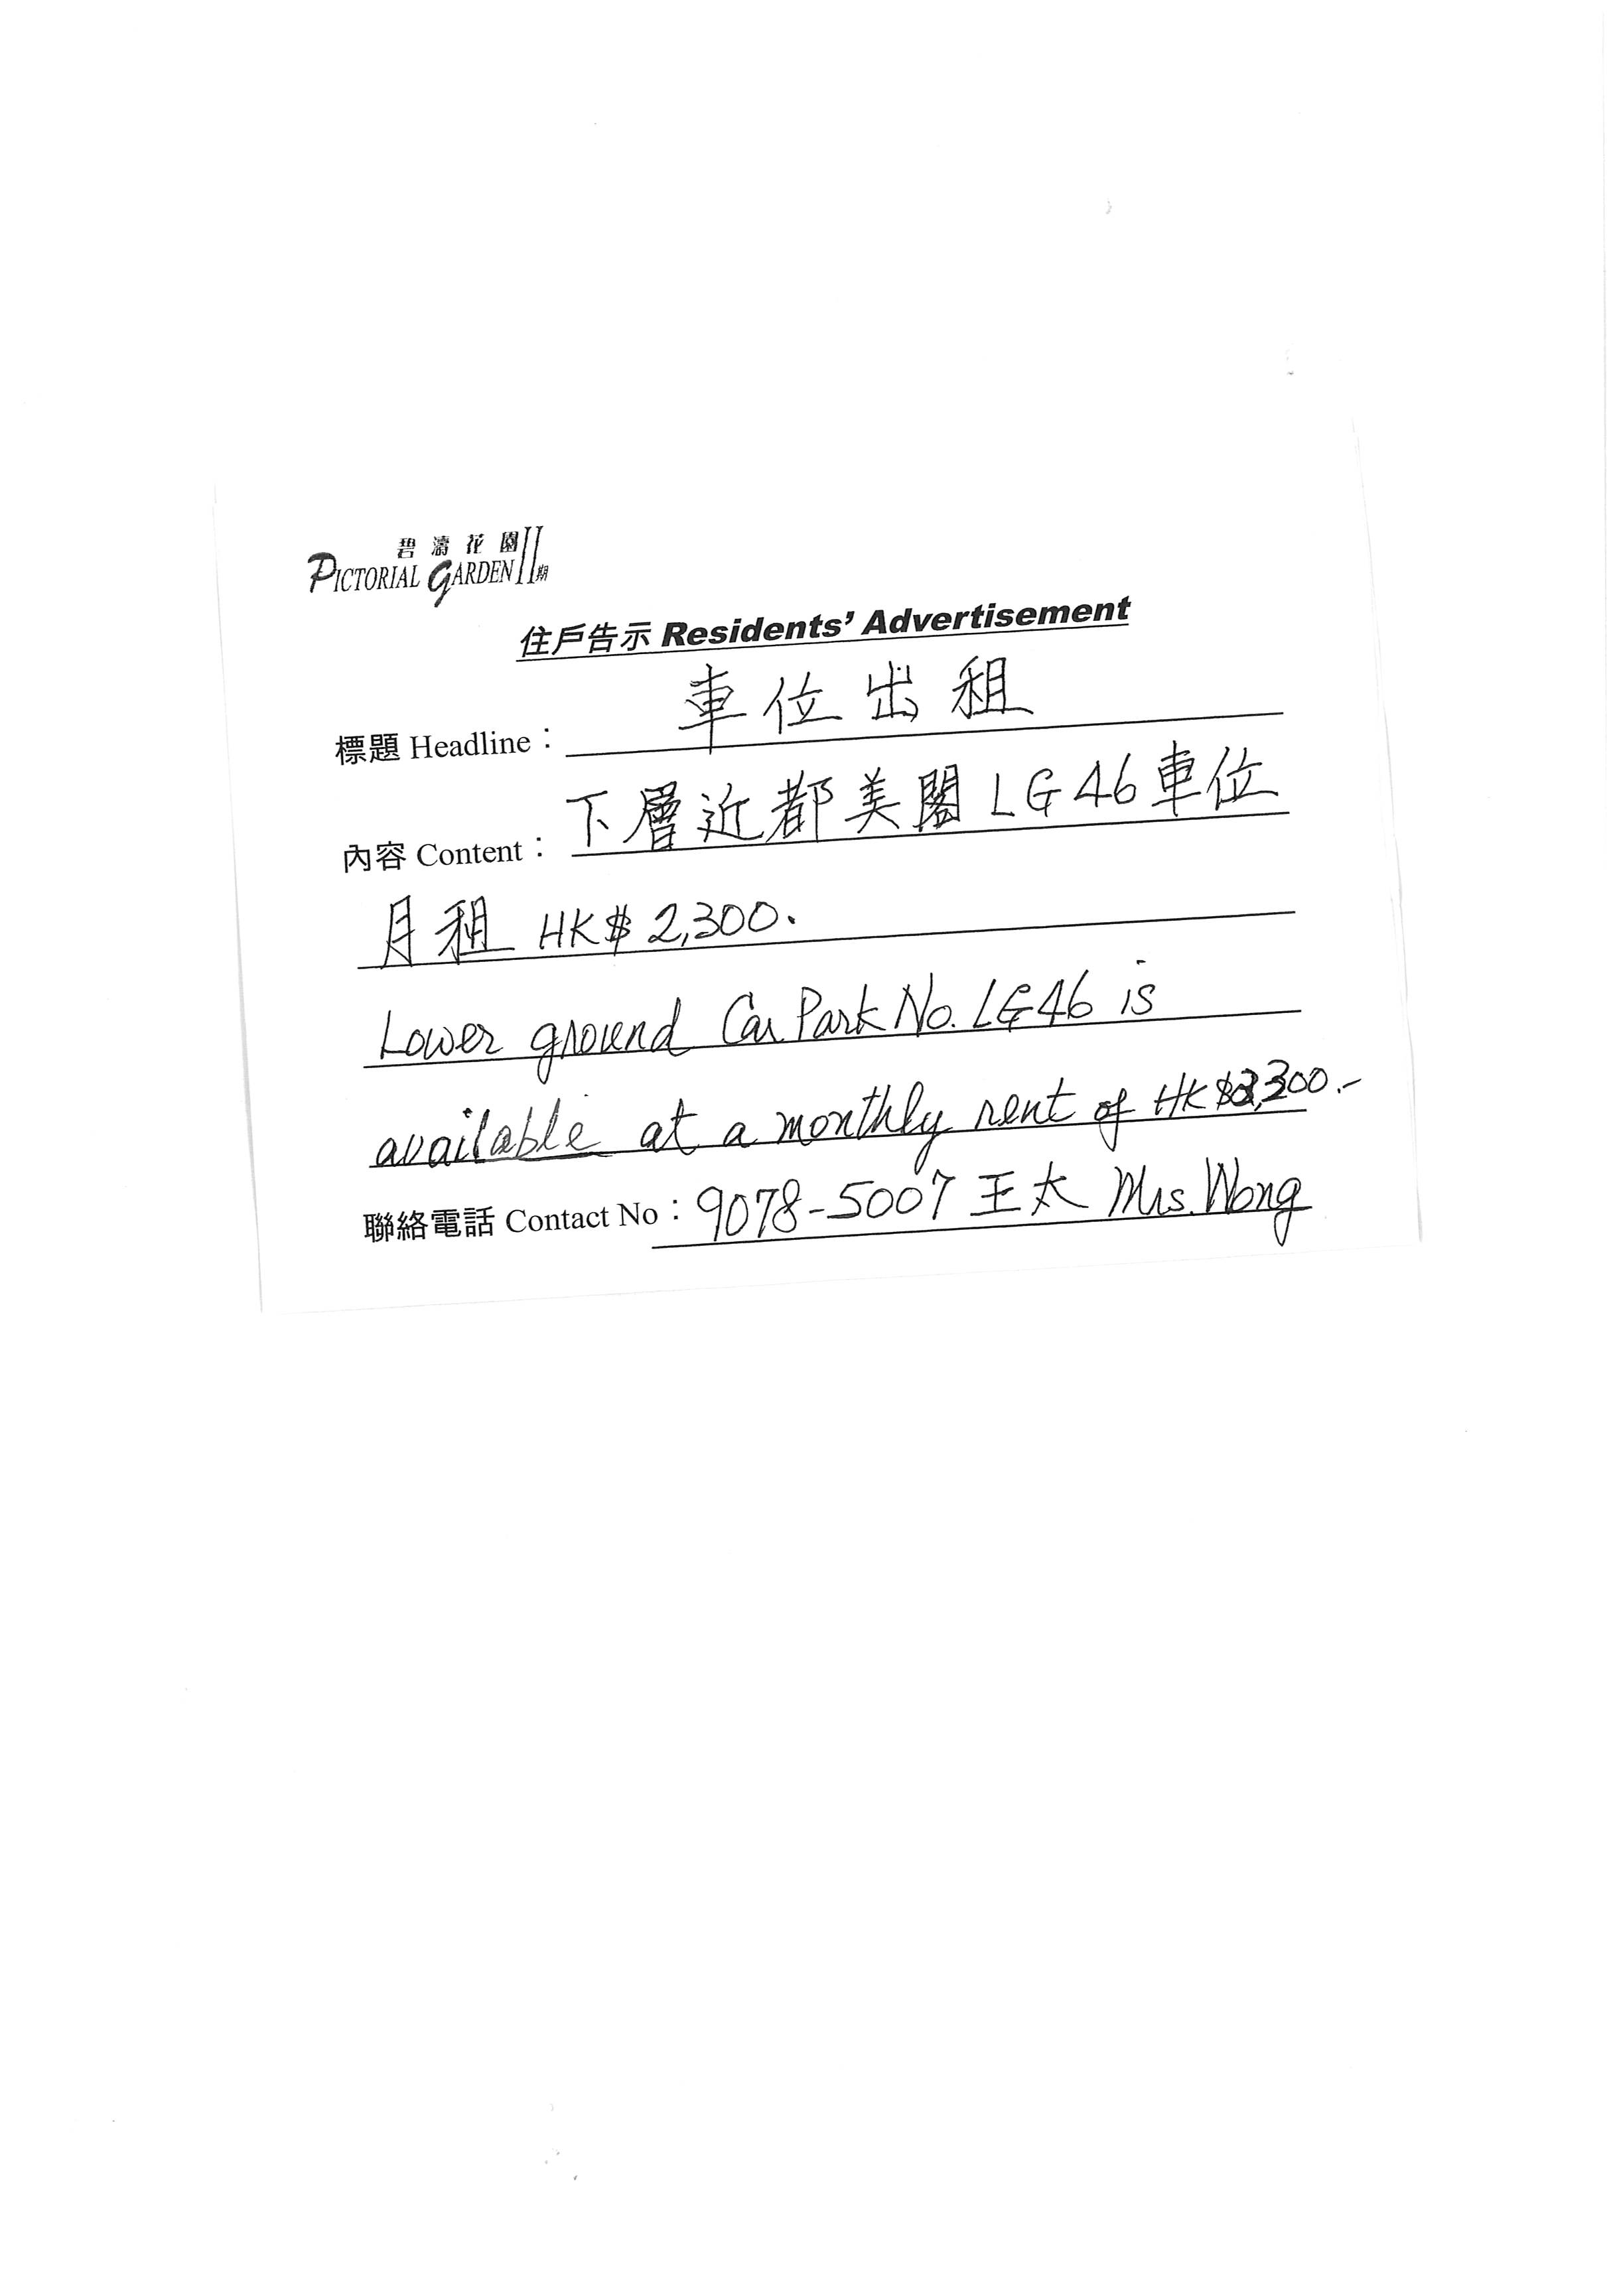 碧濤花園 II 期
PICTORIAL GARDEN
住戶告示 Residents' Advertisement
標題 Headline： 車位出租
內容 Content： 下層近都美閣 LG46 車位
月租 HK$ 2,300.
Lower ground Car Park No. LG46 is
available at a monthly rent of HK$2,300.-
聯絡電話 Contact No： 9078-5007 王太 Mrs. Wong